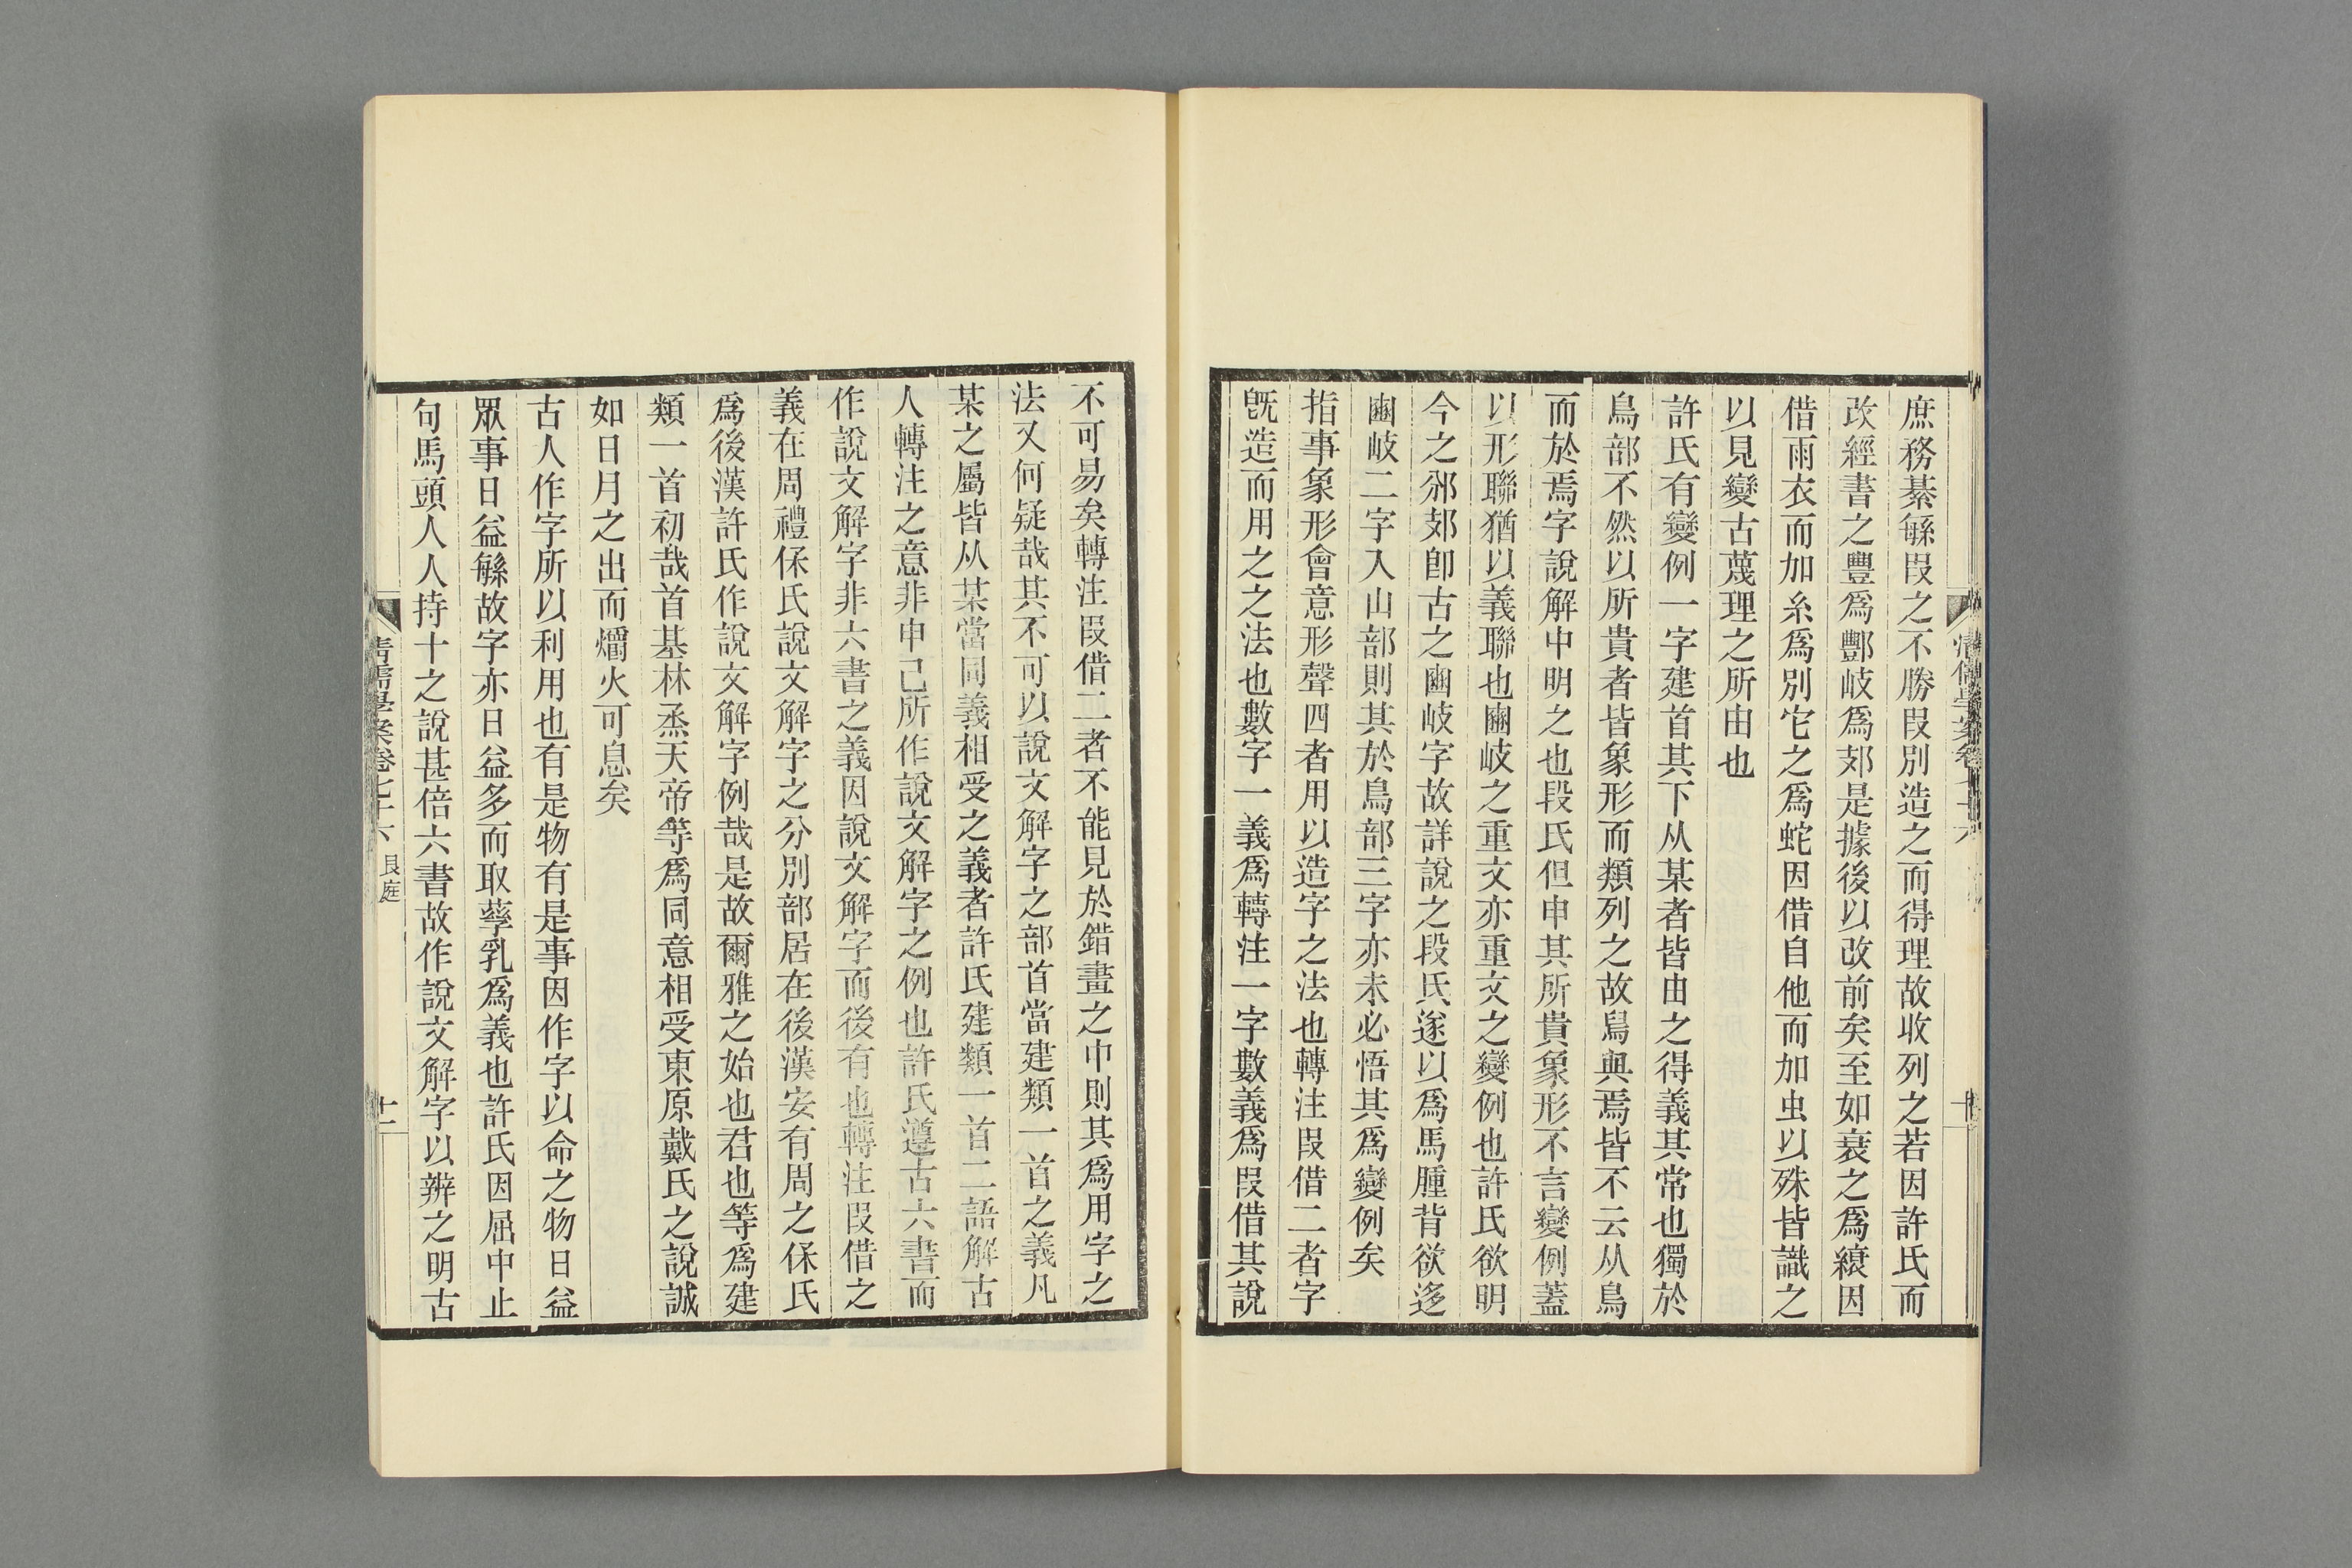 庶務綦緐叚之不勝叚別造之而得理故收列之若因許氏而
改經書之豐爲酆岐爲郊是據後以改前矣至如衰之爲縗因
借雨衣而加糸爲別它之爲蛇因借自他而加虫以殊皆識之
以見變古蔑理之所由也
許氏有變例一字建首其下从某者皆由之得義其常也獨於
鳥部不然以所貴者皆象形而類列之故舄與焉皆不云从鳥
而於焉字說解中明之也段氏但申其所貴象形不言變例蓋
以形聯猶以義聯也豳岐之重文亦重文之變例也許氏欲明
今之邠郊卽古之豳岐字故詳說之段氏遂以爲馬腫背欲迻
豳岐二字入山部則其於鳥部三字亦未必悟其爲變例矣
指事象形會意形聲四者用以造字之法也轉注叚借二者字
旣造而用之之法也數字一義爲轉注一字數義爲叚借其說
不可易矣轉注叚借二者不能見於錯畫之中則其爲用字之
法又何疑哉其不可以說文解字之部首當建類一首之義凡
某之屬皆从某當同義相受之義者許氏建類一首二語解古
人轉注之意非申己所作說文解字之例也許氏遵古六書而
作說文解字非六書之義因說文解字而後有也轉注叚借之
義在周禮保氏說文解字之分別部居在後漢安有周之保氏
爲後漢許氏作說文解字例哉是故爾雅之始也君也等爲建
類一首初哉首基林烝天帝等爲同意相受東原戴氏之說誠
如日月之出而爝火可息矣
古人作字所以利用也有是物有是事因作字以命之物日益
眾事日益緐故字亦日益多而取孳乳爲義也許氏因屈中止
句馬頭人人持十之說甚倍六書故作說文解字以辨之明古
清儒學案卷七十六 艮庭
十一